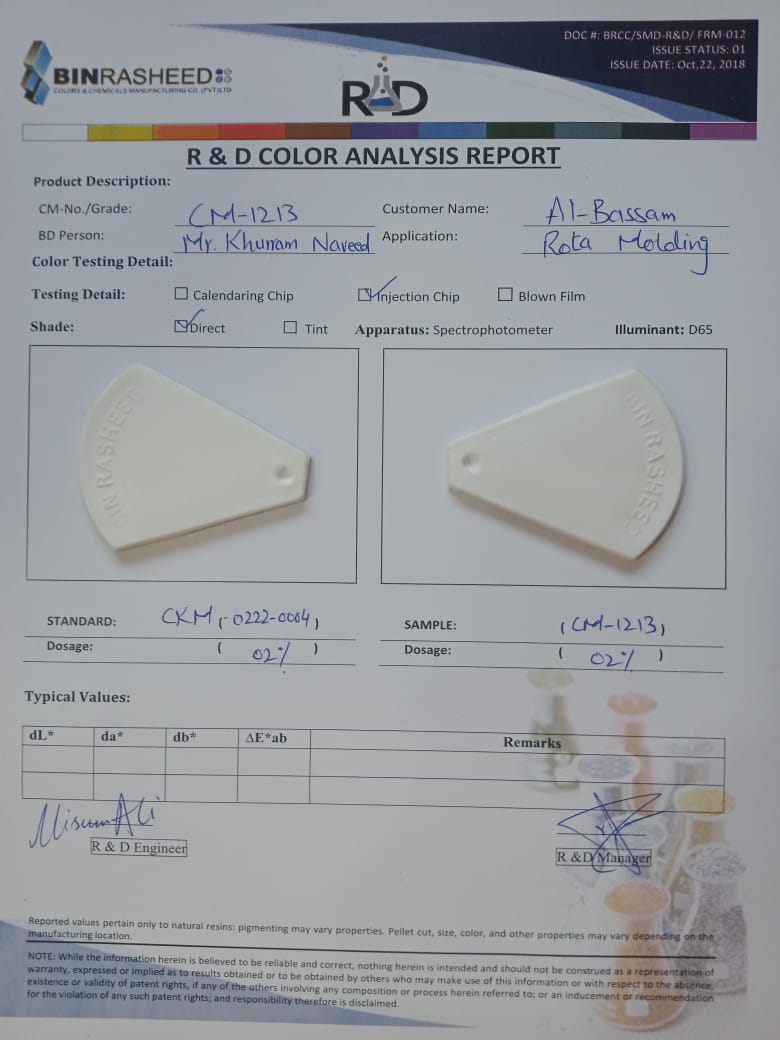 DOC #: BRCC/SMD-R&D/ FRM-012
ISSUE STATUS: 01
ISSUE DATE: Oct,22, 2018
BINRASHEED
COLORS & CHEMICALS MANUFACTURING CO. (PVT)LTD
R&D
R & D COLOR ANALYSIS REPORT
Product Description:
CM-No./Grade: CM-1213 Customer Name: Al-Bassam
BD Person: Mr. Khurram Naveed Application: Rota Molding
Color Testing Detail:
Testing Detail: Calendaring Chip Injection Chip Blown Film
Shade: Direct Tint Apparatus: Spectrophotometer Illuminant: D65
BIN RASHEED
BIN RASHEED
STANDARD: CKM (-0222-0004) SAMPLE: (CM-1213)
Dosage: ( 02% ) Dosage: ( 02% )
Typical Values:
dL* da* db* ΔE*ab Remarks
R & D Engineer R &D Manager
Reported values pertain only to natural resins: pigmenting may vary properties. Pellet cut, size, color, and other properties may vary depending on the
manufacturing location.
NOTE: While the information herein is believed to be reliable and correct, nothing herein is intended and should not be construed as a representation of
warranty, expressed or implied as to results obtained or to be obtained by others who may make use of this information or with respect to the absence,
existence or validity of patent rights, if any of the others involving any composition or process herein referred to; or an inducement or recommendation
for the violation of any such patent rights; and responsibility therefore is disclaimed.